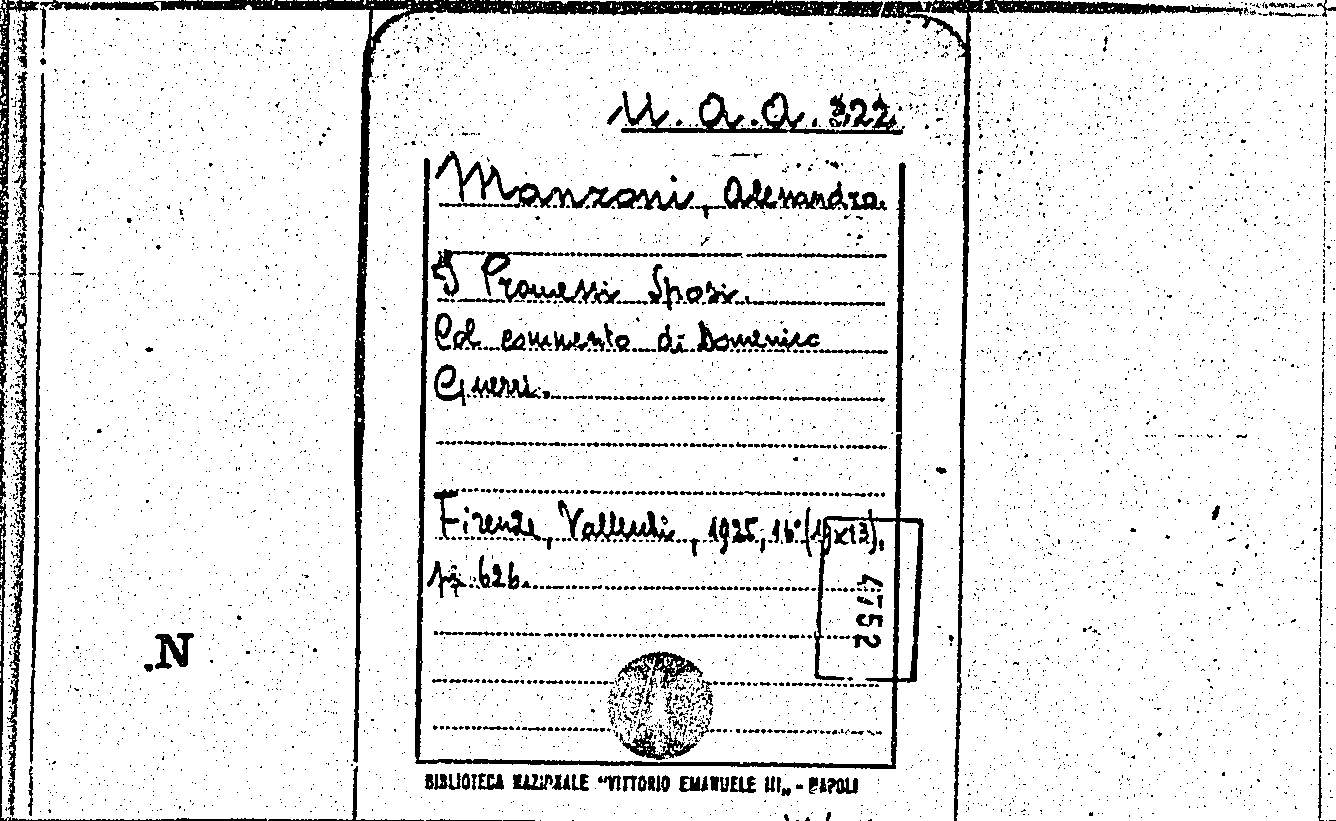 U. A. A. 322
Manzoni, Alessandro.
I Promessi Sposi.
Col commento di Domenico
Guerri.
Firenze, Vallecchi, 1925, 16° (19x13),
pp. 626.
4752
.N
BIBLIOTECA NAZIONALE "VITTORIO EMANUELE III„ - NAPOLI